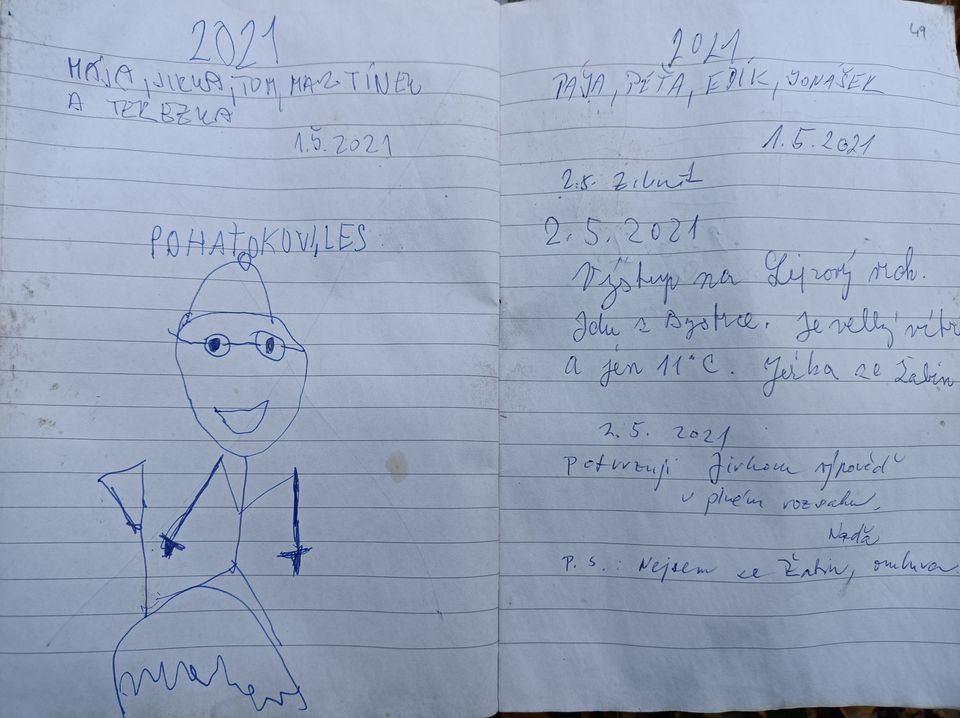 2021
MÁJA, JIRKA, TOM, MARTÍNEK
A TEREZKA
1.5.2021
POHAŤÁKOVI, LES
49
2021
PÁJA, PÉŤA, EDÍK, JONÁŠEK
1.5.2021
2.5.
2.5.2021
Výstup na Lipový vrch.
Jdu z Bystrce. Je velký vítr
a jén 11°C. Jirka ze Žabin
2.5. 2021
Potvrzuji Jirkom výpověď
v plném rozsahu.
Naďa
P.S.: Nejsem ze Žabin, omluva